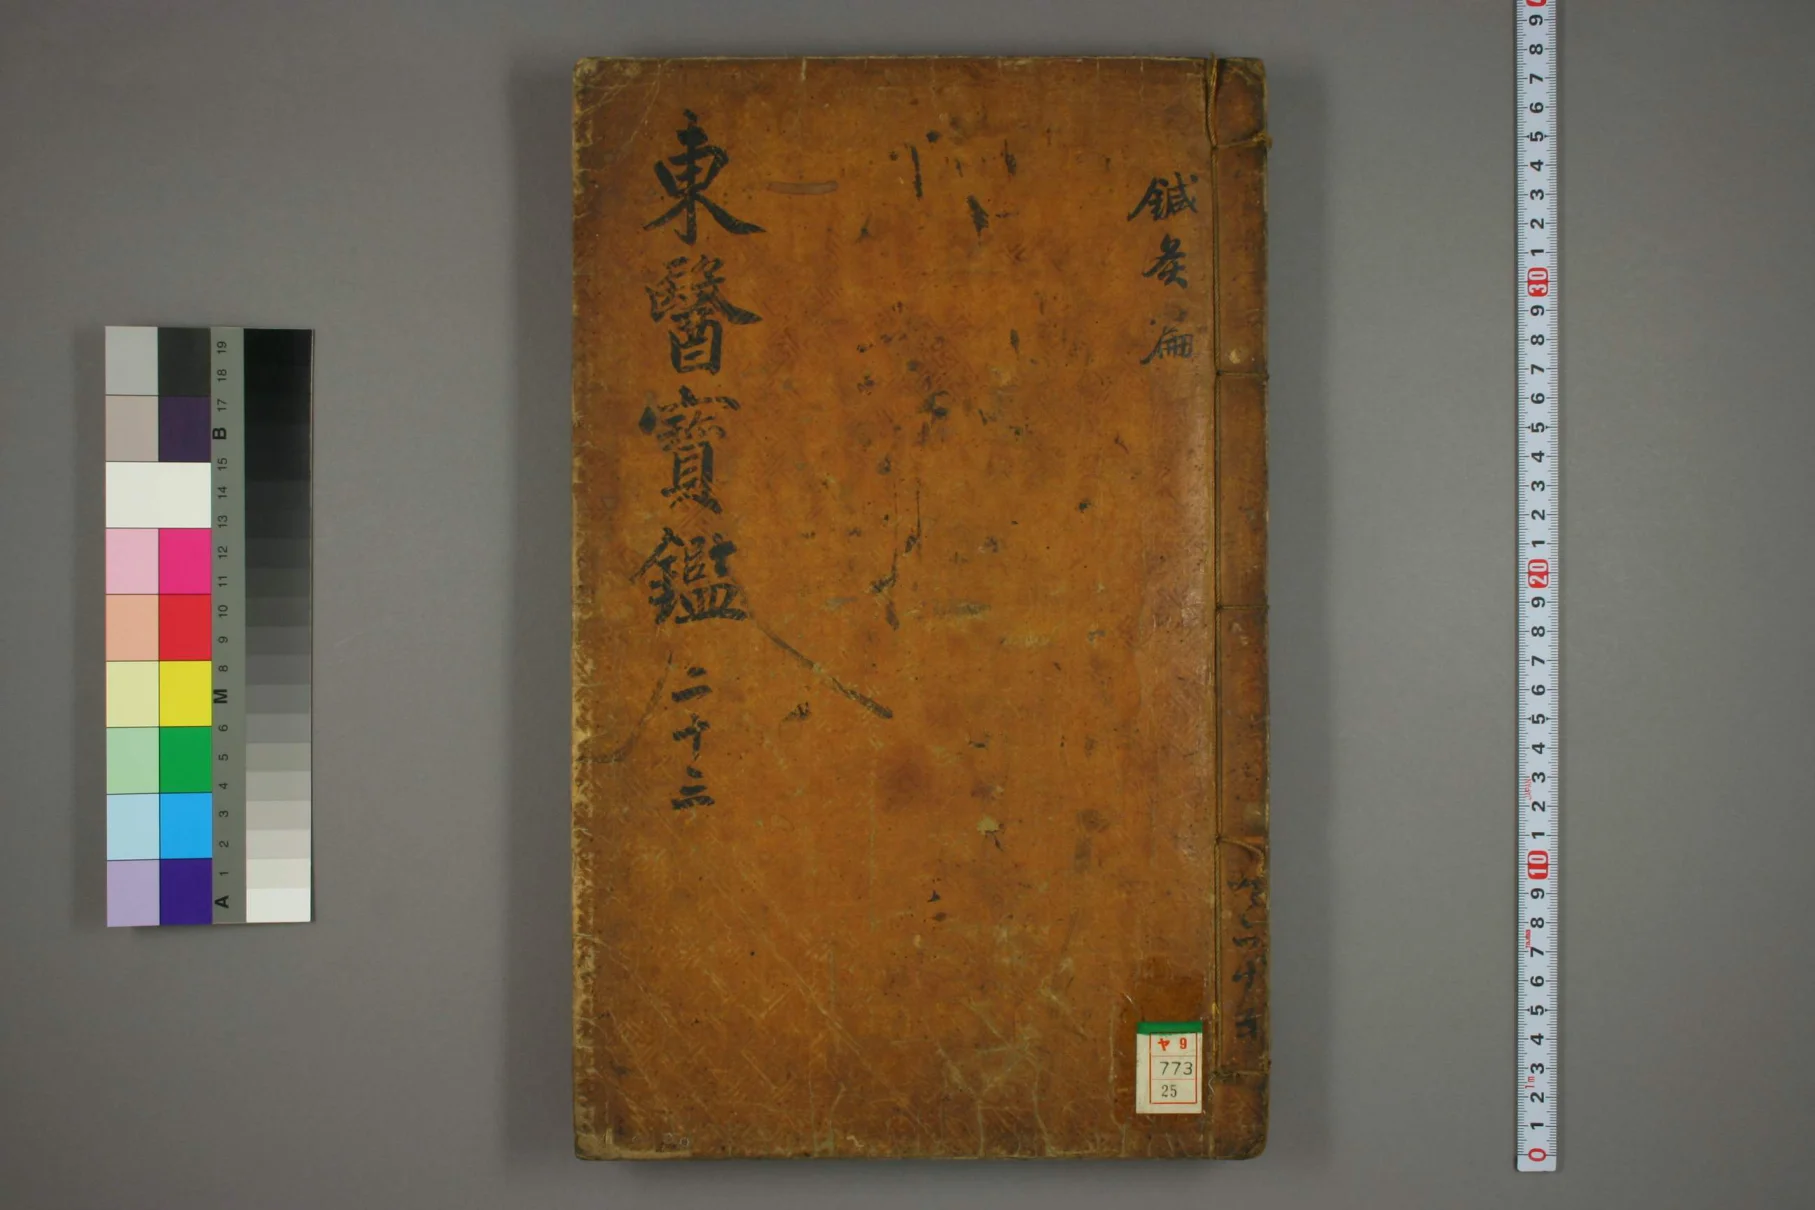 東醫寶鑑 二十三
鍼灸篇
ヤ 9
773
25
A 1 2 3 4 5 6 M 8 9 10 11 12 13 14 15 B 17 18 19
0 1 2 3 4 5 6 7 8 9 10 1 2 3 4 5 6 7 8 9 20 1 2 3 4 5 6 7 8 9 30 1 2 3 4 5 6 7 8 9
1m